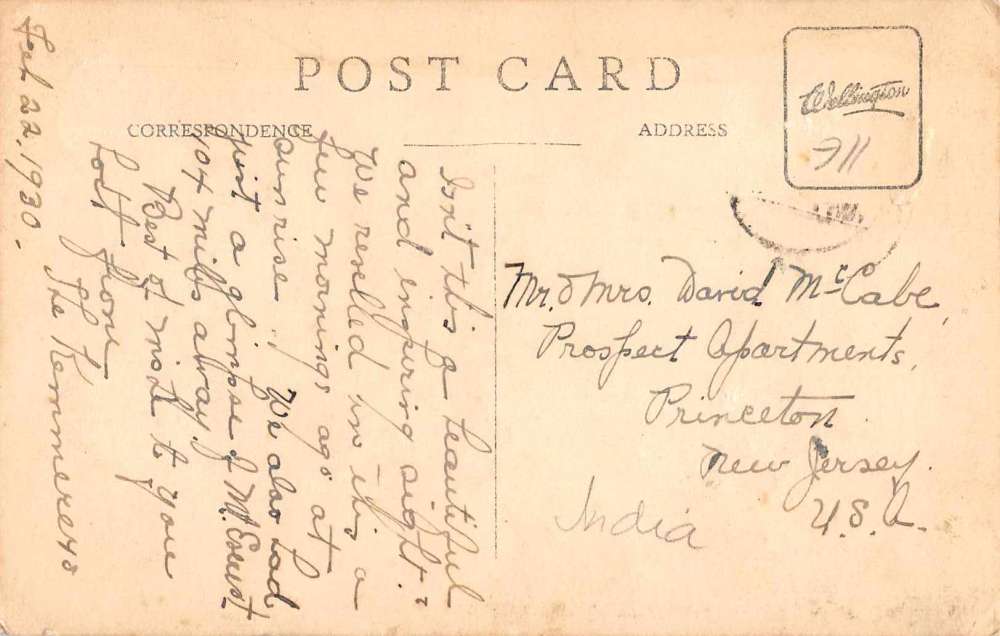 POST CARD
CORRESPONDENCE
ADDRESS
Wellington
711
Feb 22. 1930.
Isn't this a beautiful
and inspiring sight?
We revelled in it a
few mornings ago at
sunrise. We also had
just a glimpse of Mt. Everest
104 miles away.
Best of wishes to you
both from
The Kemmerers
Mr. & Mrs. David McCabe,
Prospect Apartments,
Princeton
New Jersey.
U.S.A.
India